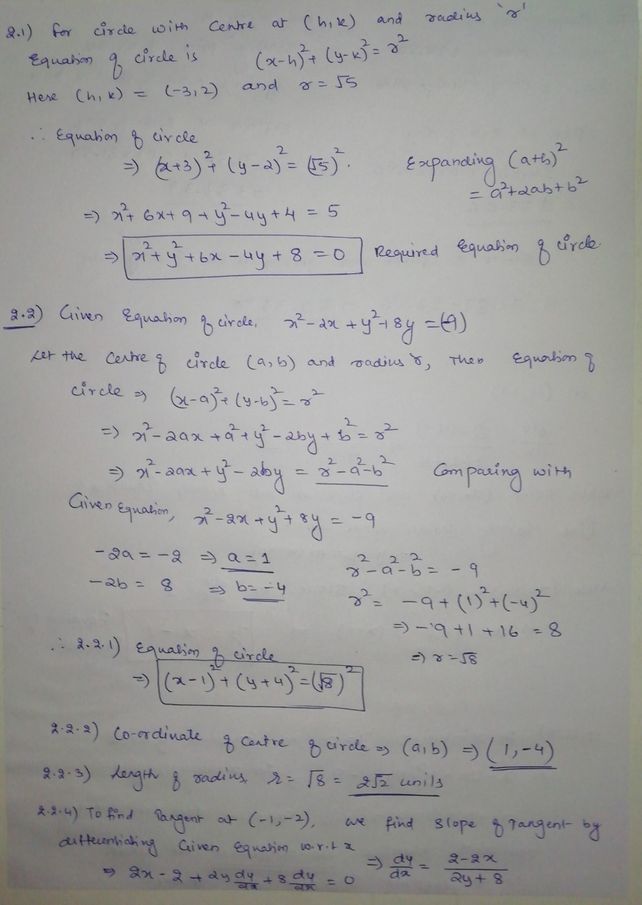 2.1) For circle with Centre at (h,k) and radius 'r'
Equation of circle is (x-h)²+(y-k)²=r²
Here (h,k) = (-3,2) and r=√5
∴ Equation of circle
⇒ (x+3)²+(y-2)²=(√5)². Expanding (a+b)²
= a²+2ab+b²
⇒ x²+6x+9+y²-4y+4 = 5
⇒ x²+y²+6x-4y+8=0 Required Equation of circle.
2.2) Given Equation of circle, x²-2x+y²+8y=(-9)
Let the Centre of circle (a,b) and radius r, Then Equation of
circle ⇒ (x-a)²+(y-b)²=r²
⇒ x²-2ax+a²+y²-2by+b²=r²
⇒ x²-2ax+y²-2by = r²-a²-b² Comparing with
Given Equation, x²-2x+y²+8y = -9
-2a = -2 ⇒ a=1 r²-a²-b² = -9
-2b = 8 ⇒ b=-4 r² = -9+(1)²+(-4)²
⇒ -9+1+16 = 8
∴ 2.2.1) Equation of circle ⇒ r=√8
⇒ (x-1)²+(y+4)²=(√8)²
2.2.2) Co-ordinate of Centre of circle ⇒ (a,b) ⇒ (1,-4)
2.2.3) Length of radius r= √8 = 2√2 units
2.2.4) To find Tangent at (-1,-2), we find slope of Tangent by
differentiating Given Equation w.r.t x
⇒ 2x-2+2y dy/dx + 8 dy/dx = 0 ⇒ dy/dx = 2-2x/2y+8